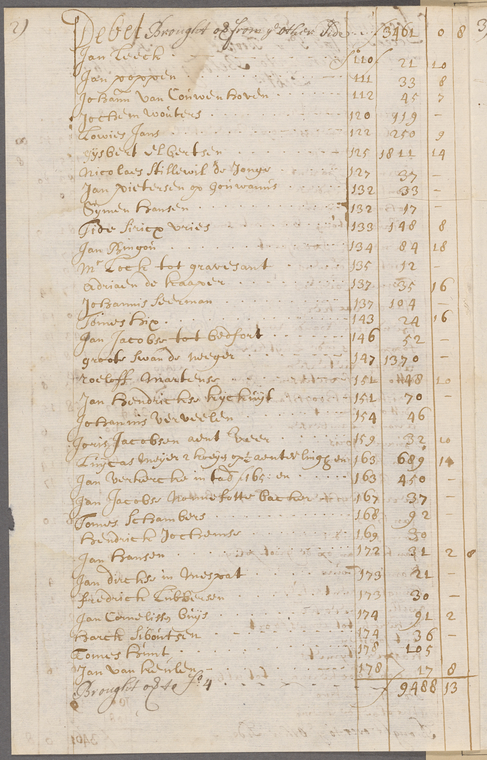 2) Debet Brought from ye other Side 3461 0 8
Jan Teeck 110 21 10
Jan poppen 111 33 8
Johann van Couwenhoven 112 45 7
Jochem wouters 120 119 –
Lowies Jans 122 250 9
Gysbert Elbertsen 125 1811 14
Nicolaes Stillewil de Jonge 127 37 –
Jan pietersen op gouwanis 132 33 –
Symen Hansen 132 17 –
Tide Siricx vries 133 148 8
Jan 134 84 18
Mr Lock tot gravesant 135 12 –
Adriaen de 137 35 16
Johannis 137 104 –
Tomes Hix 143 24 16
Jan Jacobse tot bedfort 146 52 –
groote Swan de neeger 147 1370 –
roeloff Martense 151 148 10
Jan Hendrickse Kyckuyt 151 70 –
Johannis verveelen 154 46
Joris Jacobsen aent veer 159 32 10
meyer 163 689 14
Jan verkercke in 165 en 163 450 –
Jan Jacobs 167 37 –
Tomes Schambers 168 92 –
Hendrick Jochemse 169 30
Jan Hansen 172 31 2 8
Jan dirckse in mespat 173 21 –
fredrick Lubbersen 173 30 –
Jan Cornelissen buys 174 91 2
Harck Siboutsen 174 36 –
Tomes Hunt 178 105
Jan van 178 17 8
Brought to fo 4 9488 13